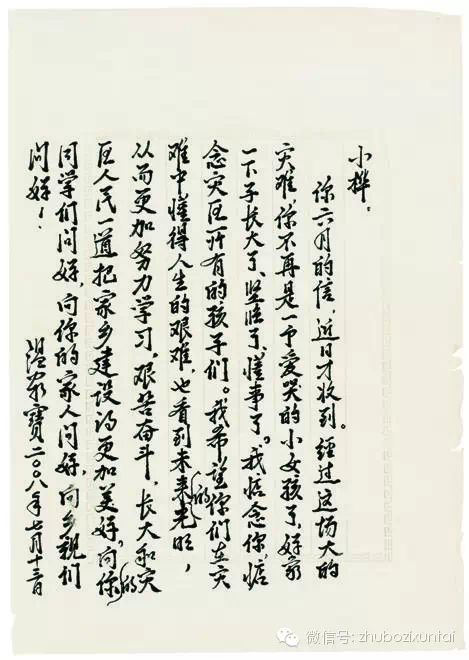 小桦：
你六月的信，近日才收到。经过这场大的
灾难，你不再是一个爱哭的小女孩了，好象
一下子长大了、坚强了、懂事了。我惦念你，惦
念灾区所有的孩子们。我希望你们在灾
难中懂得人生的艰难，也看到未来的光明，
从而更加努力学习，艰苦奋斗，长大和灾
区人民一道把家乡建设得更加美好。向你的
同学们问好，向你的家人问好，向乡亲们
问好！
温家寶 二〇〇八年七月十三日
微信号: zhubozixuntai